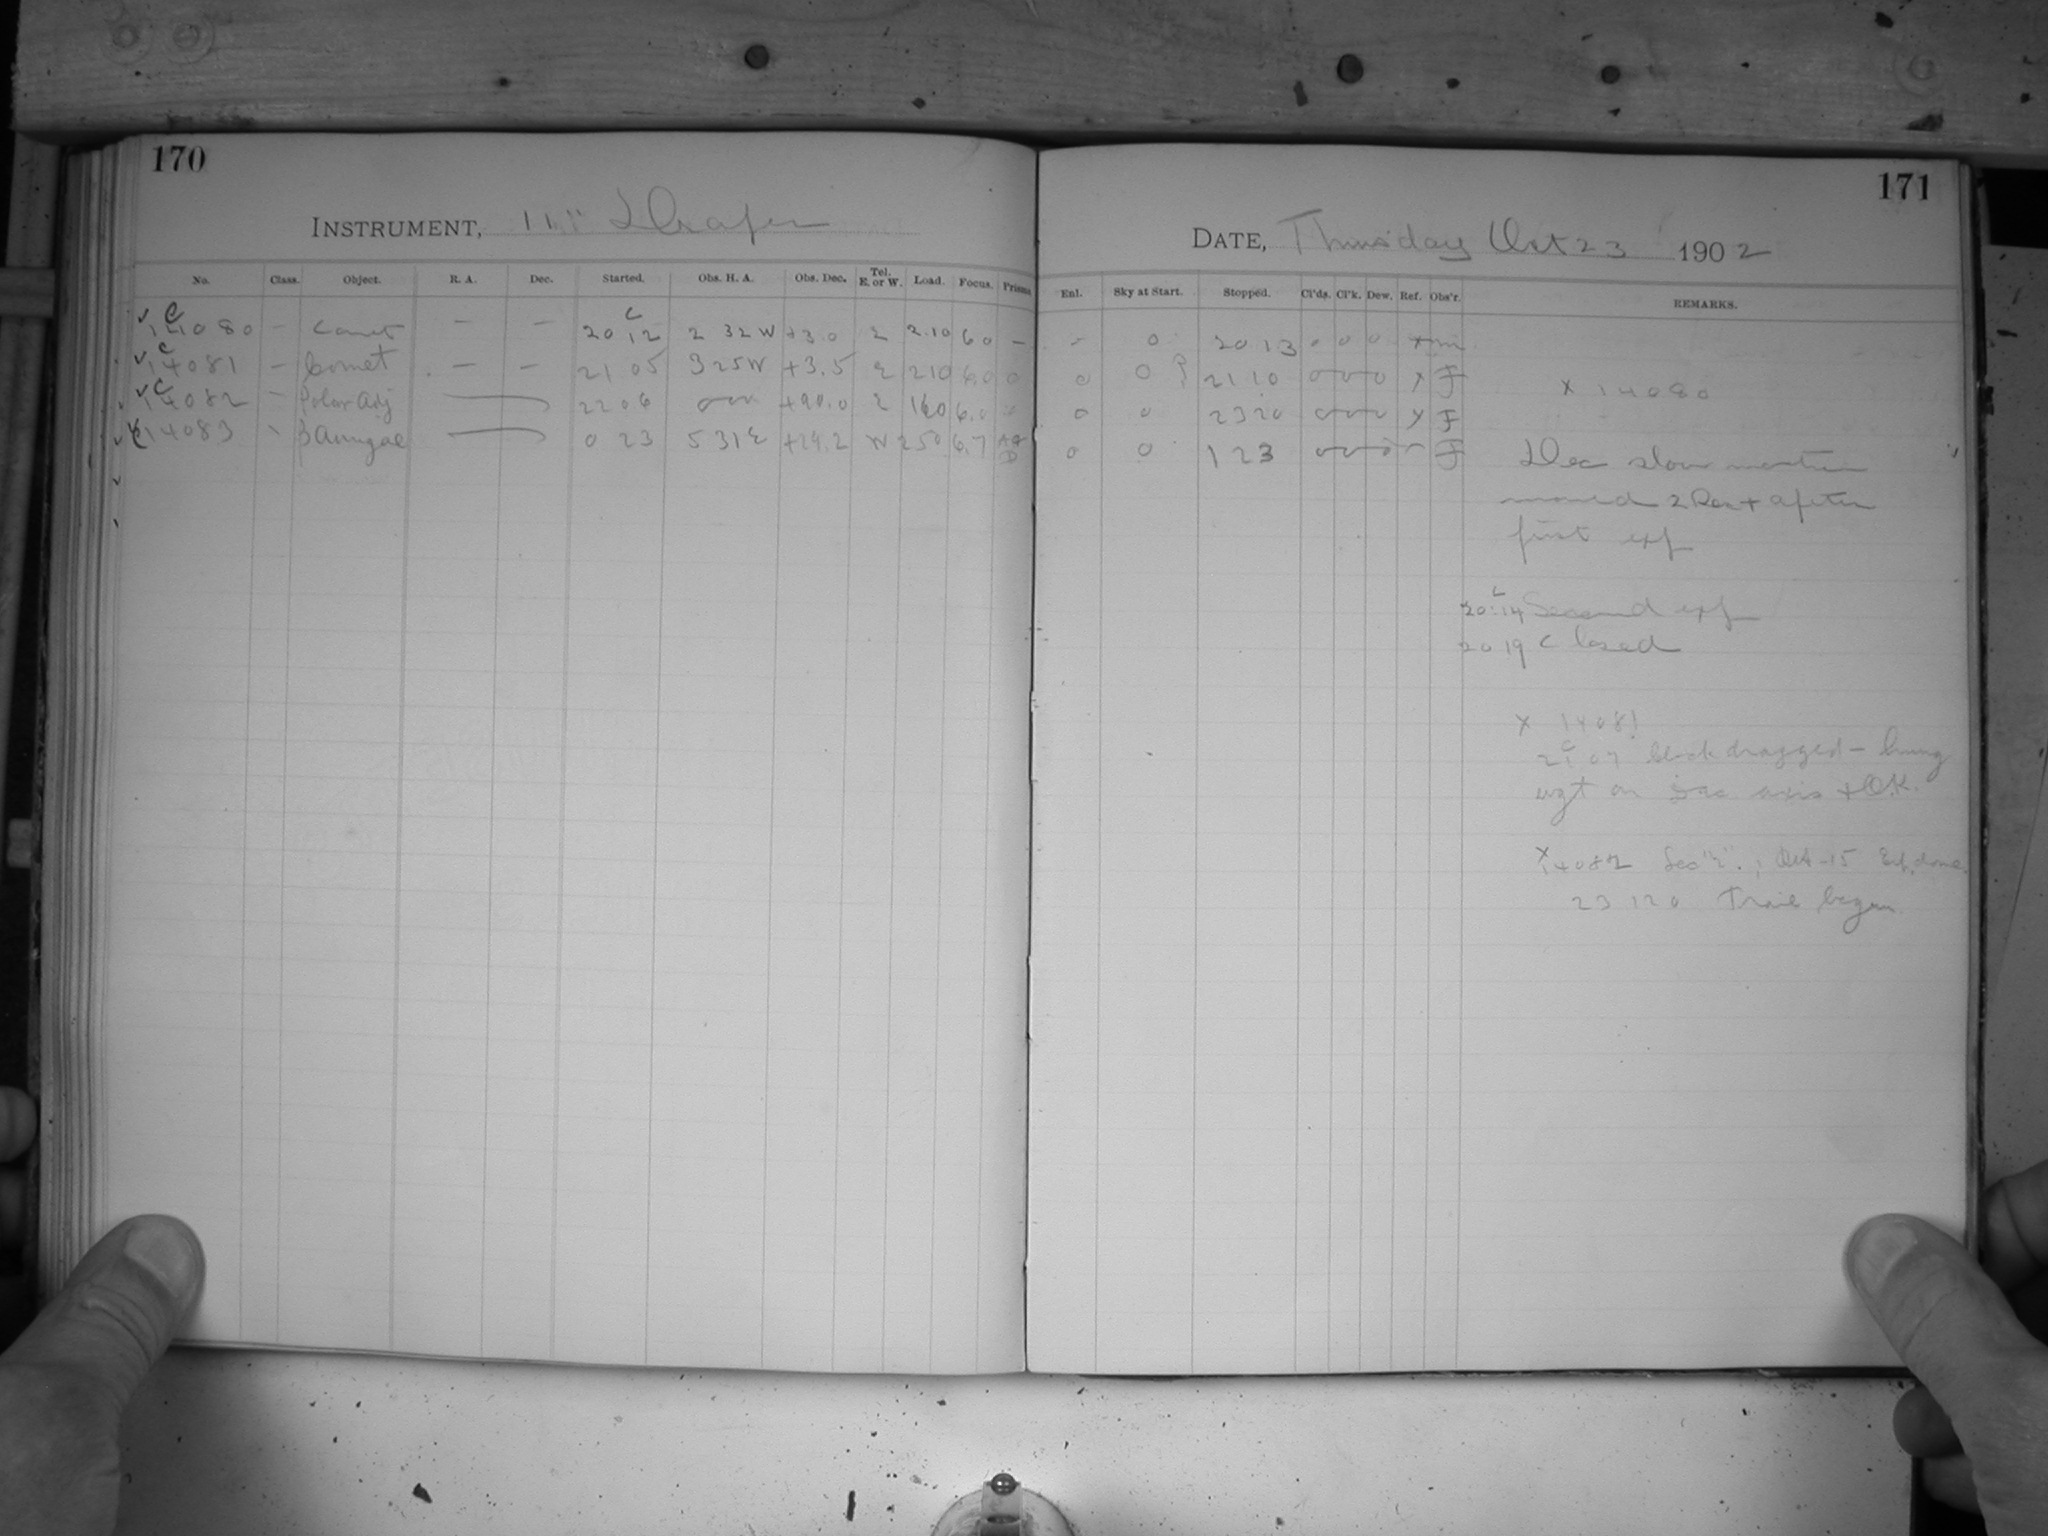 170
INSTRUMENT, 11" Draper
No. Class. Object. R. A. Dec. Started. Obs. H. A. Obs. Dec. Tel. E. or W. Load. Focus. Prisms
C 14080 – Comet – – 20 12 2 32 W +3.0 E 2.10 6.0 –
C 14081 – Comet – – 21 05 3 25 W +3.5 E 210 6.0 0
C 14082 – Polar Adj 22 06 +90.0 E 160 6.0
C 14083 β Aurigae 0 23 5 31 E W 250 6.7
171
DATE, Thursday Oct 23 1902
Enl. Sky at Start. Stopped. Cl'ds. Cl'k. Dew. Ref. Obs'r. REMARKS.
– 0 20 13 0 0 0 x m
0 0 ? 21 10 0 0 0 x F
0 0 23 20 0 0 0 x F
0 0 1 23 F
x 14080
Dec slow motion
moved 2 Rev + after
first exp
20:14 Second exp
20 19 Closed
x 14081
21 07 clock dragged – hung
wgt on Dec axis + O.K.
x 14082 Oct 15
23 12 0 Trail began